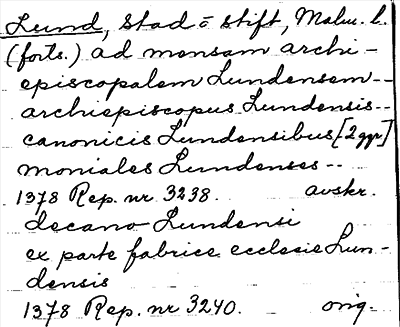 Lund, stad o stift, Malm. l.
(forts.) ad mensam archi-
episcopalem Lundensem--
archiepiscopus Lundensis--
canonicis Lundensibus [2 ggr]
moniales Lundenses --
1378 Rep. nr 3238. avskr.
decano Lundensi
ex parte fabrice ecclesie Lun-
densis
1378 Rep. nr 3240. orig.